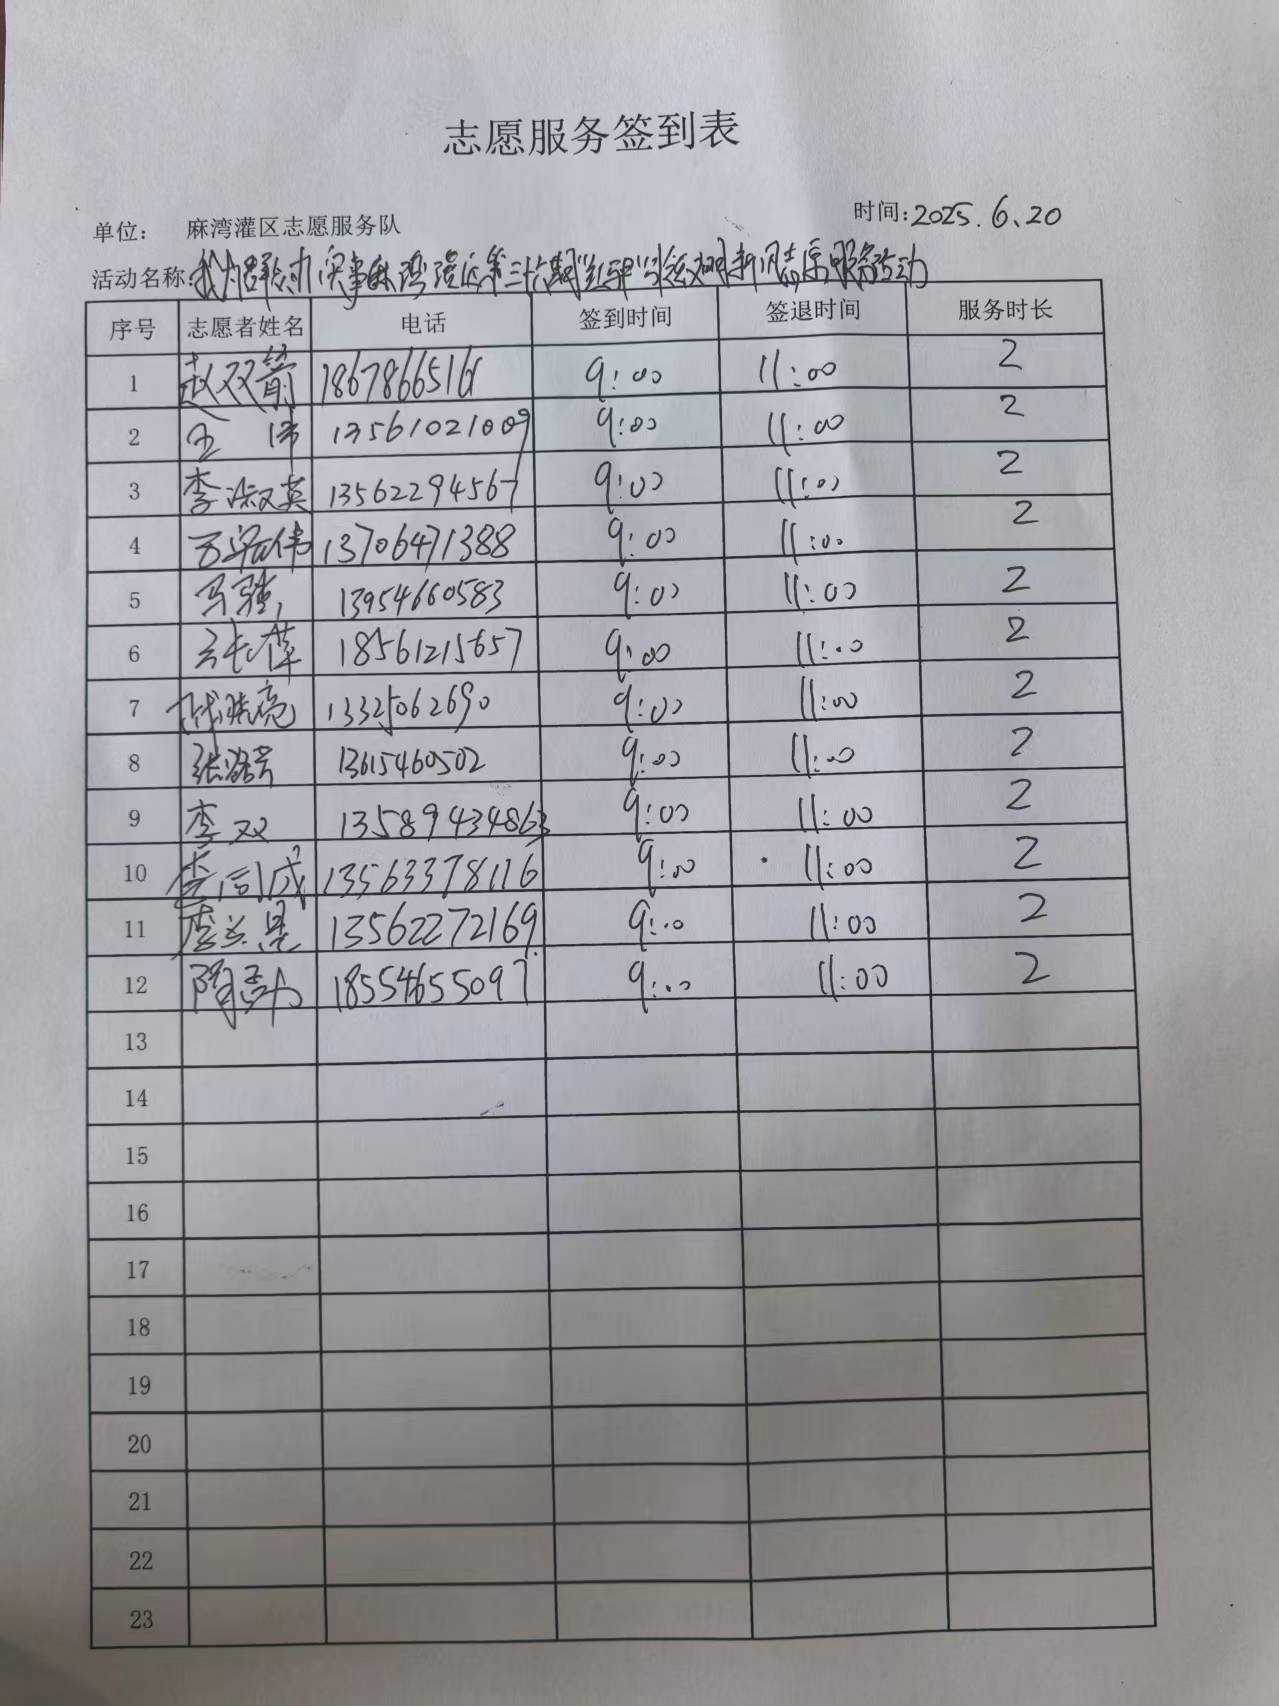 志愿服务签到表
单位: 麻湾灌区志愿服务队 时间:2025.6.20
活动名称:我为群众办实事麻湾灌区第三十六期"红马甲"引领文明新风志愿服务活动
序号 志愿者姓名 电话 签到时间 签退时间 服务时长
1 赵双箭 18678665161 9:00 11:00 2
2 13561021009 9:00 11:00 2
3 李淑英 13562294567 9:00 11:00 2
4 13706471388 9:00 11:00 2
5 马骏 13954660583 9:00 11:00 2
6 18561215657 9:00 11:00 2
7 13325062690 9:00 11:00 2
8 13615460502 9:00 11:00 2
9 李双 13589434863 9:00 11:00 2
10 李同成 13563378116 9:00 11:00 2
11 李兰昆 13562272169 9:00 11:00 2
12 18554655097 9:00 11:00 2
13
14
15
16
17
18
19
20
21
22
23